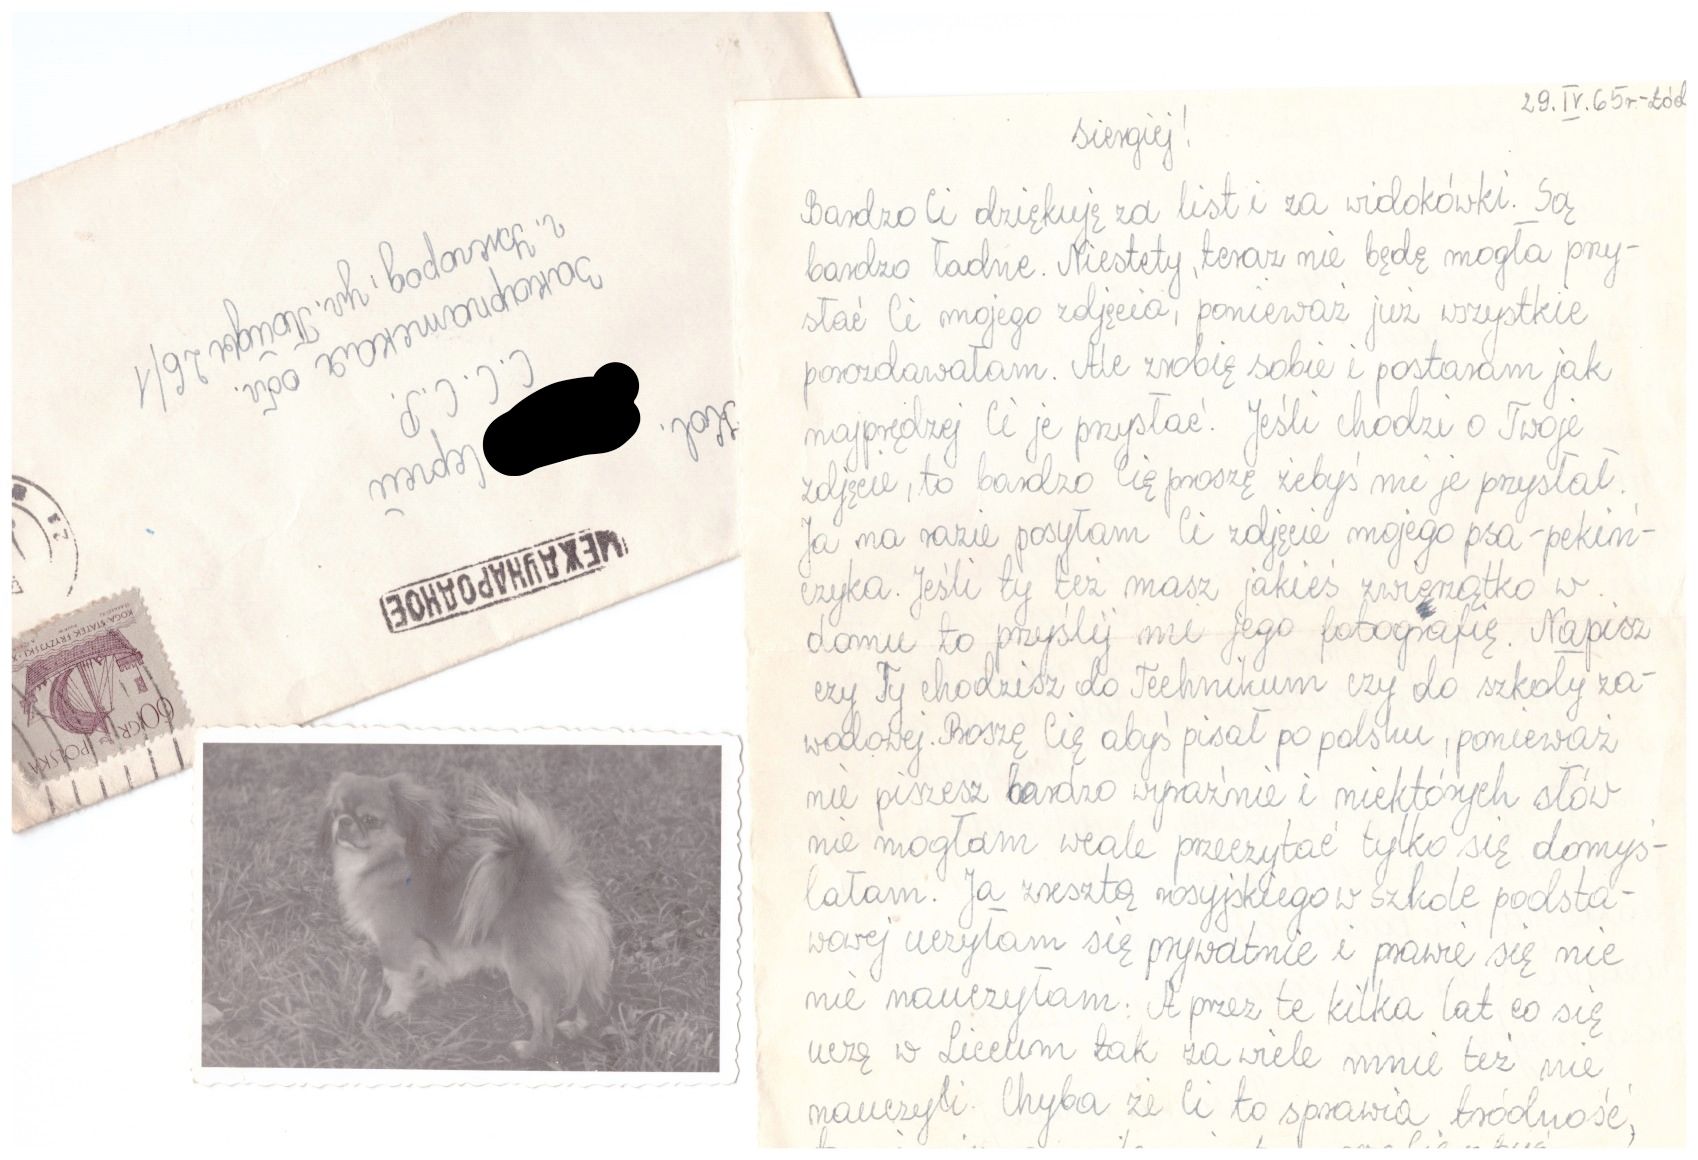 29.IV.65r.-Łód
Siergiej!
Bardzo Ci dziękuję za list i za widokówki. Są
bardzo ładne. Niestety, teraz nie będę mogła przy-
słać Ci mojego zdjęcia, ponieważ już wszystkie
porozdawałam. Ale zrobię sobie i postaram jak
najprędzej Ci je przysłać. Jeśli chodzi o Twoje
zdjęcie, to bardzo Cię proszę żebyś mi je przysłał.
Ja na razie posyłam Ci zdjęcie mojego psa-pekiń-
czyka. Jeśli ty też masz jakieś zwierzątko w
domu to przyślij mi jego fotografię. Napisz
czy Ty chodzisz do Technikum czy do szkoły za-
wodowej. Proszę Cię abyś pisał po polsku, ponieważ
nie piszesz bardzo wyraźnie i niektórych słów
nie mogłam wcale przeczytać tylko się domyś-
lałam. Ja zresztą rosyjskiego w szkole podsta-
wowej uczyłam się prywatnie i prawie się nic
nie nauczyłam. A przez te kilka lat co się
uczę w Liceum tak za wiele mnie też nie
nauczyli. Chyba że Ci to sprawia tródność,
г. Ужгород, ул. 26/1
Закарпатская обл.
С.С.С.Р.
МЕЖДУНАРОДНОЕ
KOGA STATEK FRYZYJSKI
60 GR
POLSKA